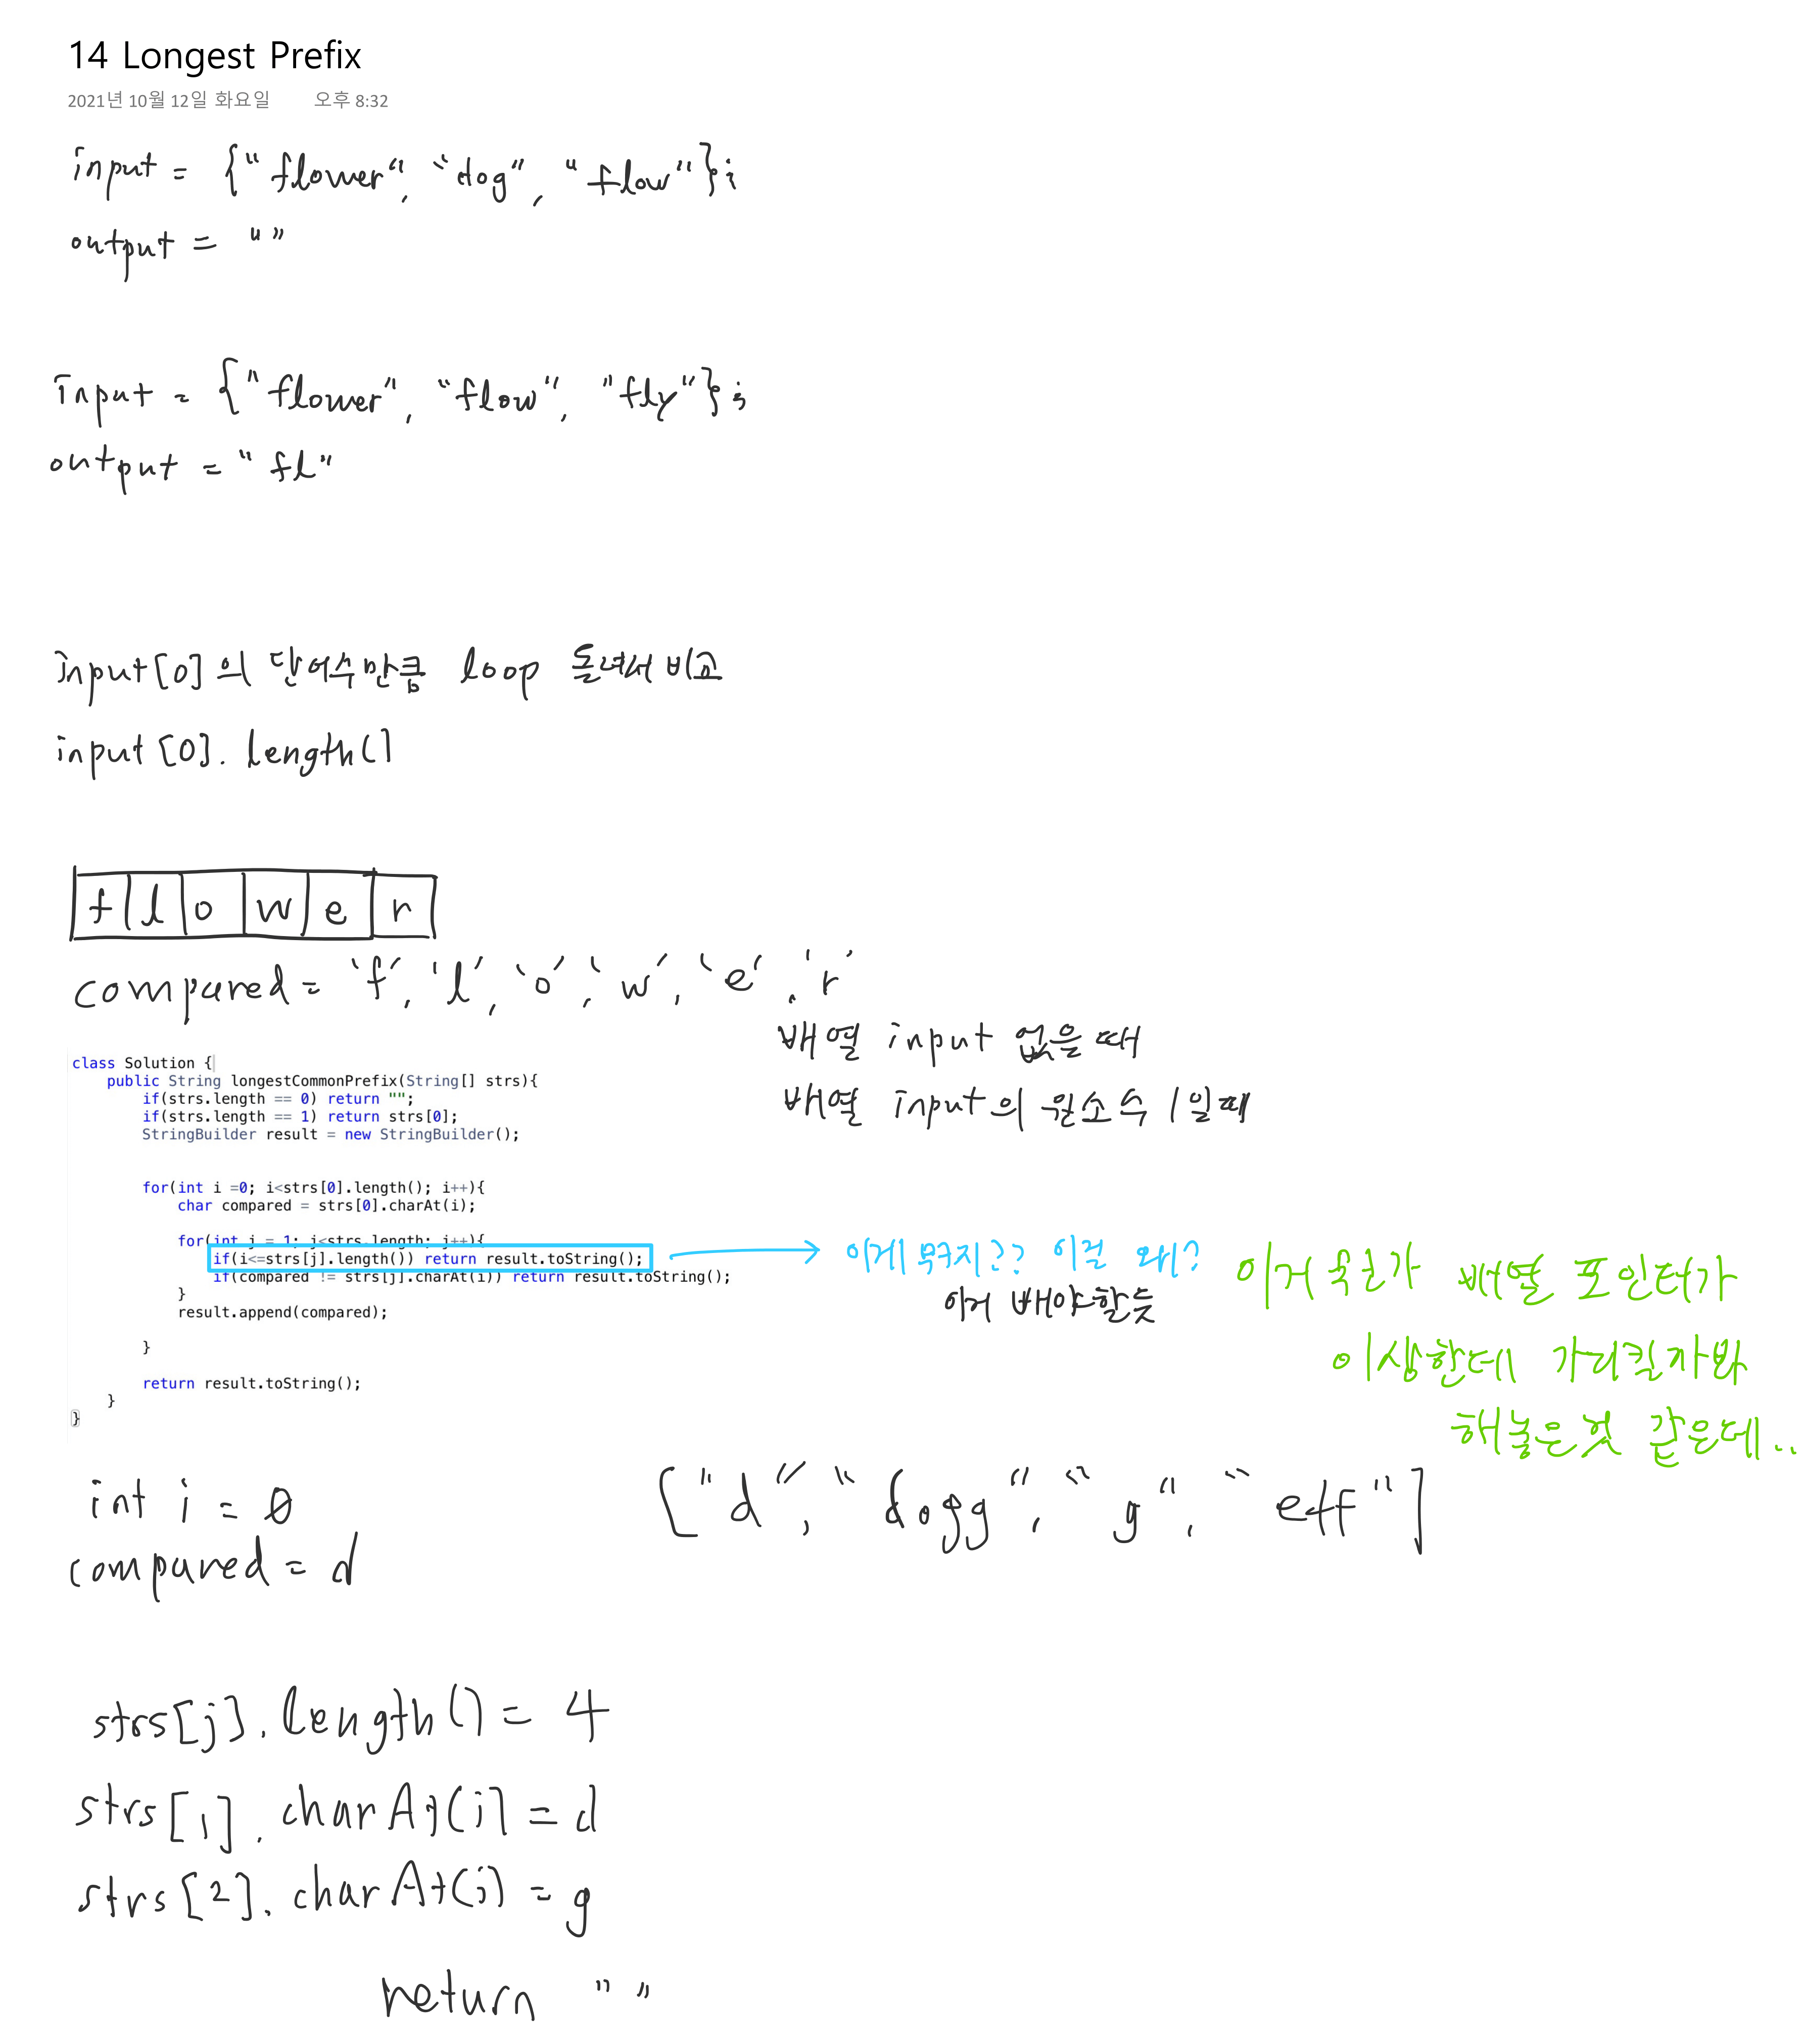 14 Longest Prefix
2021년 10월 12일 화요일 오후 8:32
input = {"flower", "dog", "flow"};
output = ""
input = {"flower", "flow", "fly"};
output = "fl"
input[0]의 단어수만큼 loop 돌려서 비교
input[0].length()
f l o w e r
compared = 'f', 'l', 'o', 'w', 'e', 'r'
배열 input 없을 때
배열 input의 원소수 1일때
class Solution {
public String longestCommonPrefix(String[] strs){
if(strs.length == 0) return "";
if(strs.length == 1) return strs[0];
StringBuilder result = new StringBuilder();
for(int i =0; i<strs[0].length(); i++){
char compared = strs[0].charAt(i);
for(int j = 1; j<strs.length; j++){
if(i<=strs[j].length()) return result.toString();
if(compared != strs[j].charAt(i)) return result.toString();
}
result.append(compared);
}
return result.toString();
}
}
이게 뭐지?? 이걸 왜?
이거 빼야할듯
이거 뭔가 배열 포인터가
이상한데 가리킬까봐
해놓은것 같은데..
int i = 0
compared = d
["d", "dogg", "g", "eff"]
strs[j].length() = 4
strs[1].charAt(i) = d
strs[2].charAt(i) = g
return ""